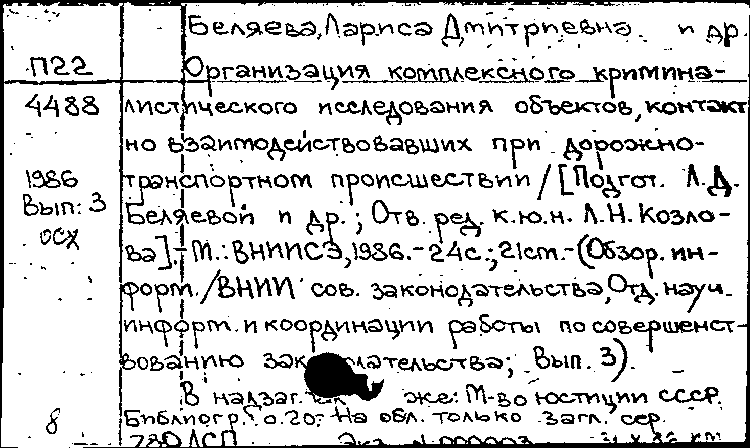 Беляева, Лариса Дмитриевна и др.
П22 Организация комплексного кримина-
4488 листического исследования объектов, контакт
но взаимодействовавших при дорожно-
1986 транспортном происшествии / [Подгот. Л.Д.
Вып: 3 Беляевой и др.; Отв. ред. к.ю.н. Л.Н. Козло-
осх ва].- М.: ВНИИСЭ, 1986.- 24с.; 21см.- (Обзор. ин-
форм. / ВНИИ сов. законодательства, Отд. науч.
информ. и координации работы по совершенст-
вованию законодательства; Вып. 3).
В надзаг. так же: М-во юстиции СССР.
8 Библиогр.: с.20. На обл. только загл. сер.
780 ДСП Экз. N 000003